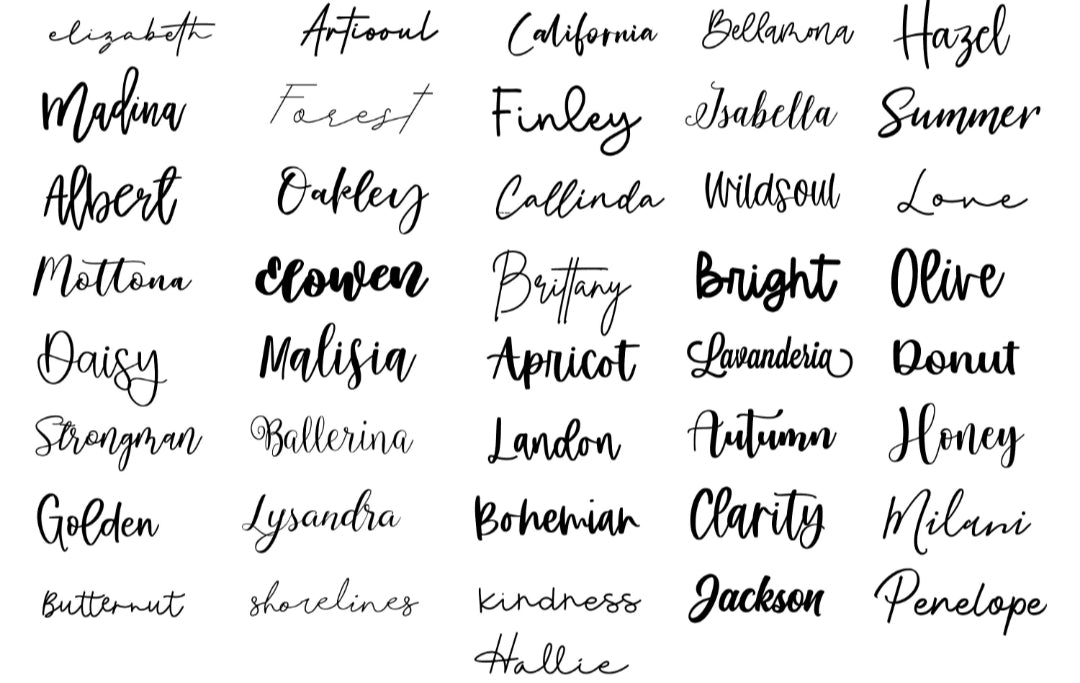 elizabeth Artisoul California Bellamona Hazel
Madina Forest Finley Isabella Summer
Albert Oakley Callinda Wildsoul Love
Mottona Elowen Brittany Bright Olive
Daisy Malisia Apricot Lavanderia Donut
Strongman Ballerina Landon Autumn Honey
Golden Lysandra Bohemian Clarity Milani
Butternut shorelines kindness Jackson Penelope
Hallie